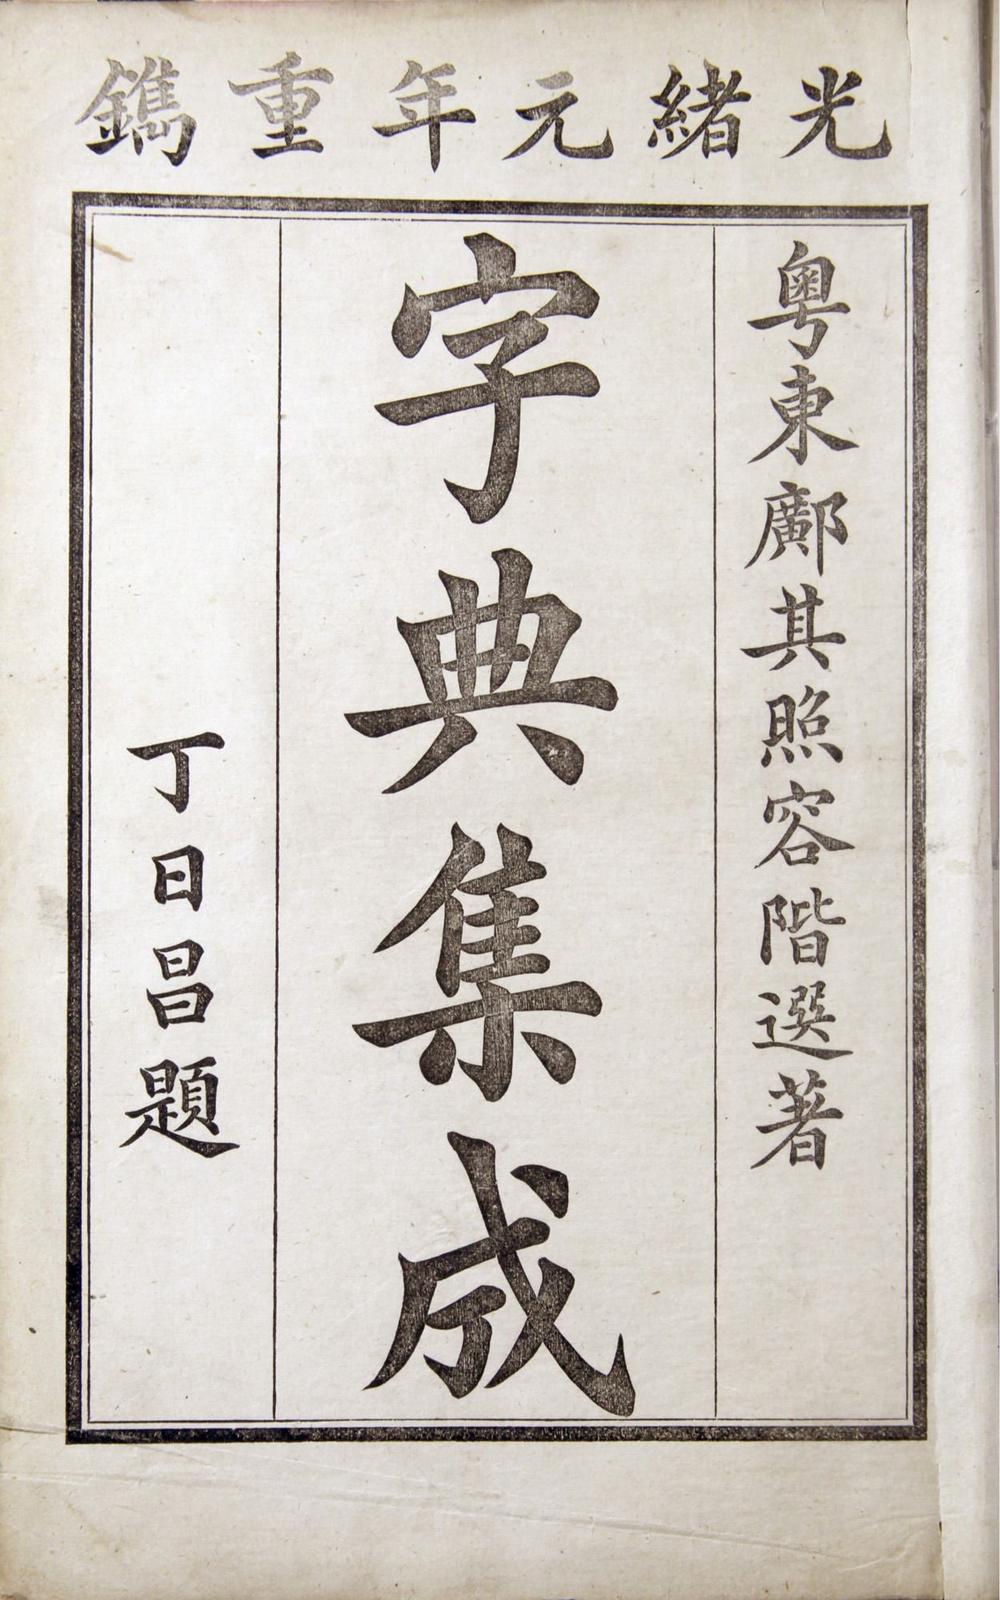 光緒元年重鐫
粵東鄺其照容階選著
字典集成
丁日昌題